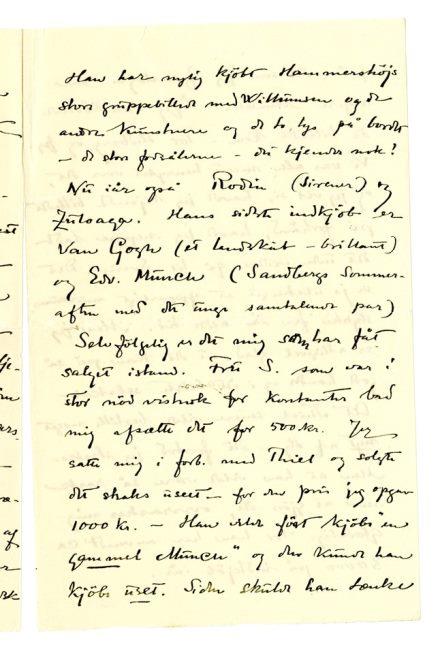 Han har nylig kjöbt Hammershöjs
store gruppebillede med Willumsen og de
andre kunstnere og de to lys på bordet
– de store fodsålerne – du kjender nok!
Nu iår også Rodin (Sirener) og
Zuloaga. Hans sidste indkjöb er
Van Gogh (et landskab – brillant)
og Edv. Münch (Sandbergs Sommer-
aften med det unge samtalende par)
Selvfölgelig er det mig som har fåt
salget istand. Frk S. som var i
stor nöd vistnok for kontanter bad
mig afsætte det for 500 kr. Jeg
satte mig i forb. med Thiel og solgte
det straks uset – for den pris jeg opgav
1000 kr. – Han vilde först kjöbe "en
gammel Münch" og den kunde han
kjöbe uset. Siden skulde han tænke
af